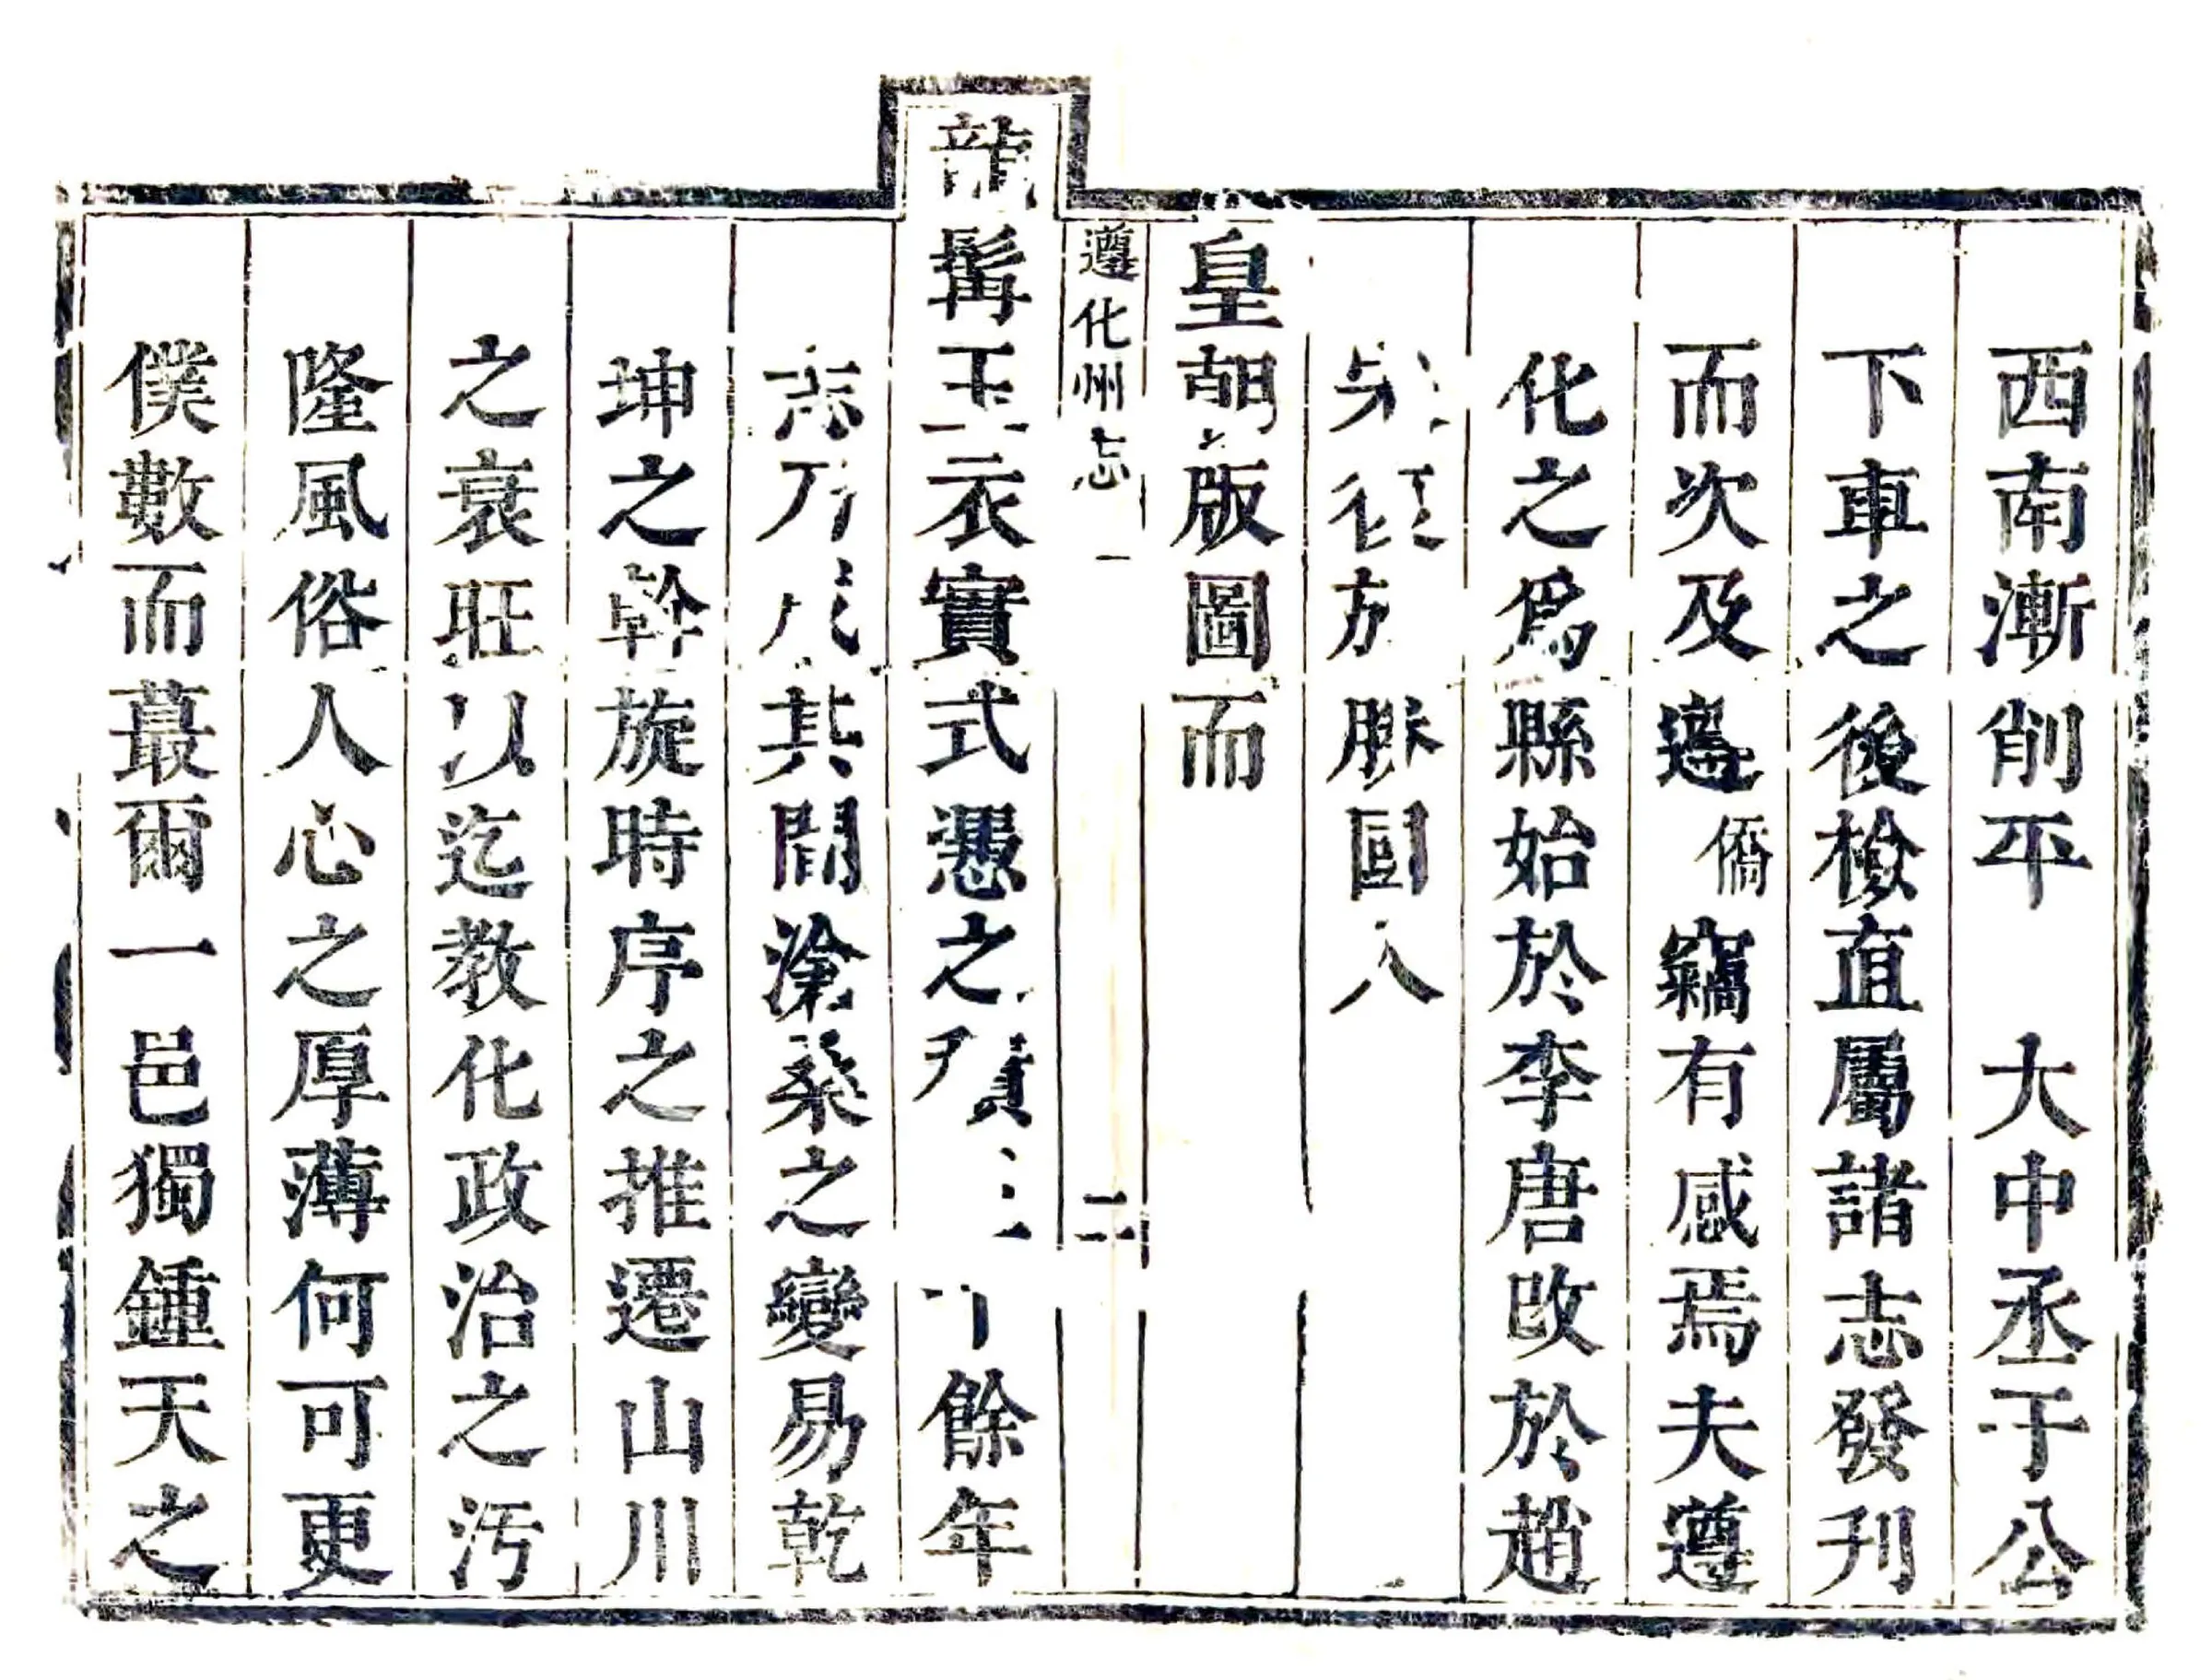 西南漸削平　大中丞于公
下車之後檢直屬諸志發刊
而次及遵僑竊有感焉夫遵
化之爲縣始於李唐改於趙
方脈國入
皇朝版圖而
遵化州志
一
二
龍髯玉衣實式憑之餘年
其間滄桑之變易乾
坤之斡旋時序之推遷山川
之衰旺以迄教化政治之污
隆風俗人心之厚薄何可更
僕數而蕞爾一邑獨鍾天之